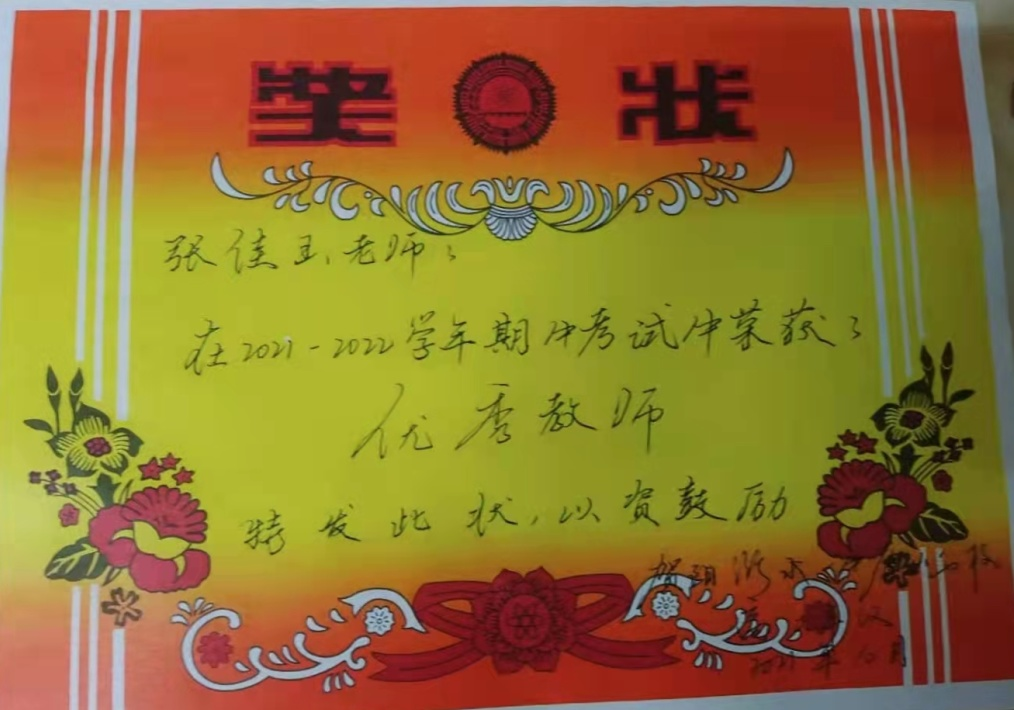 奖 状
张佳玉老师:
在2021-2022学年期中考试中荣获:
优秀教师
特发此状,以资鼓励
2021年10月